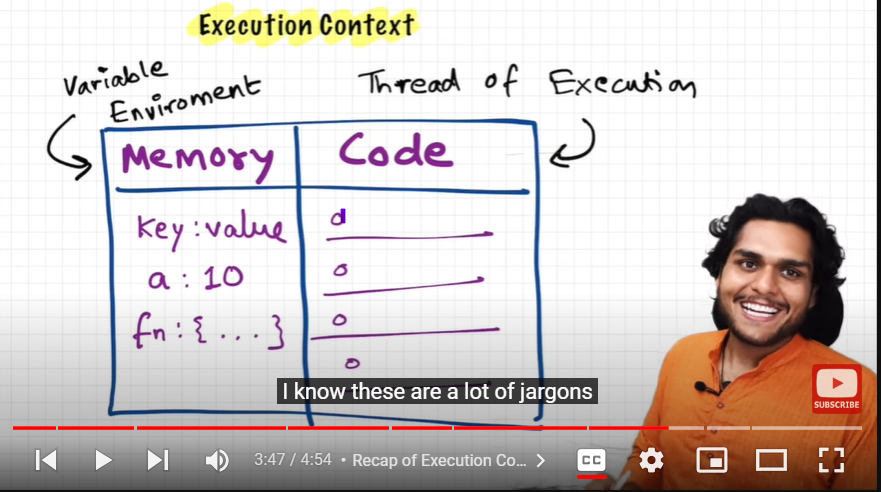 Execution Context
Variable
Enviroment
Thread of Execution
Memory
Code
key : value
a : 10
fn : { ... }
I know these are a lot of jargons
SUBSCRIBE
3:47 / 4:54 • Recap of Execution Co...
CC